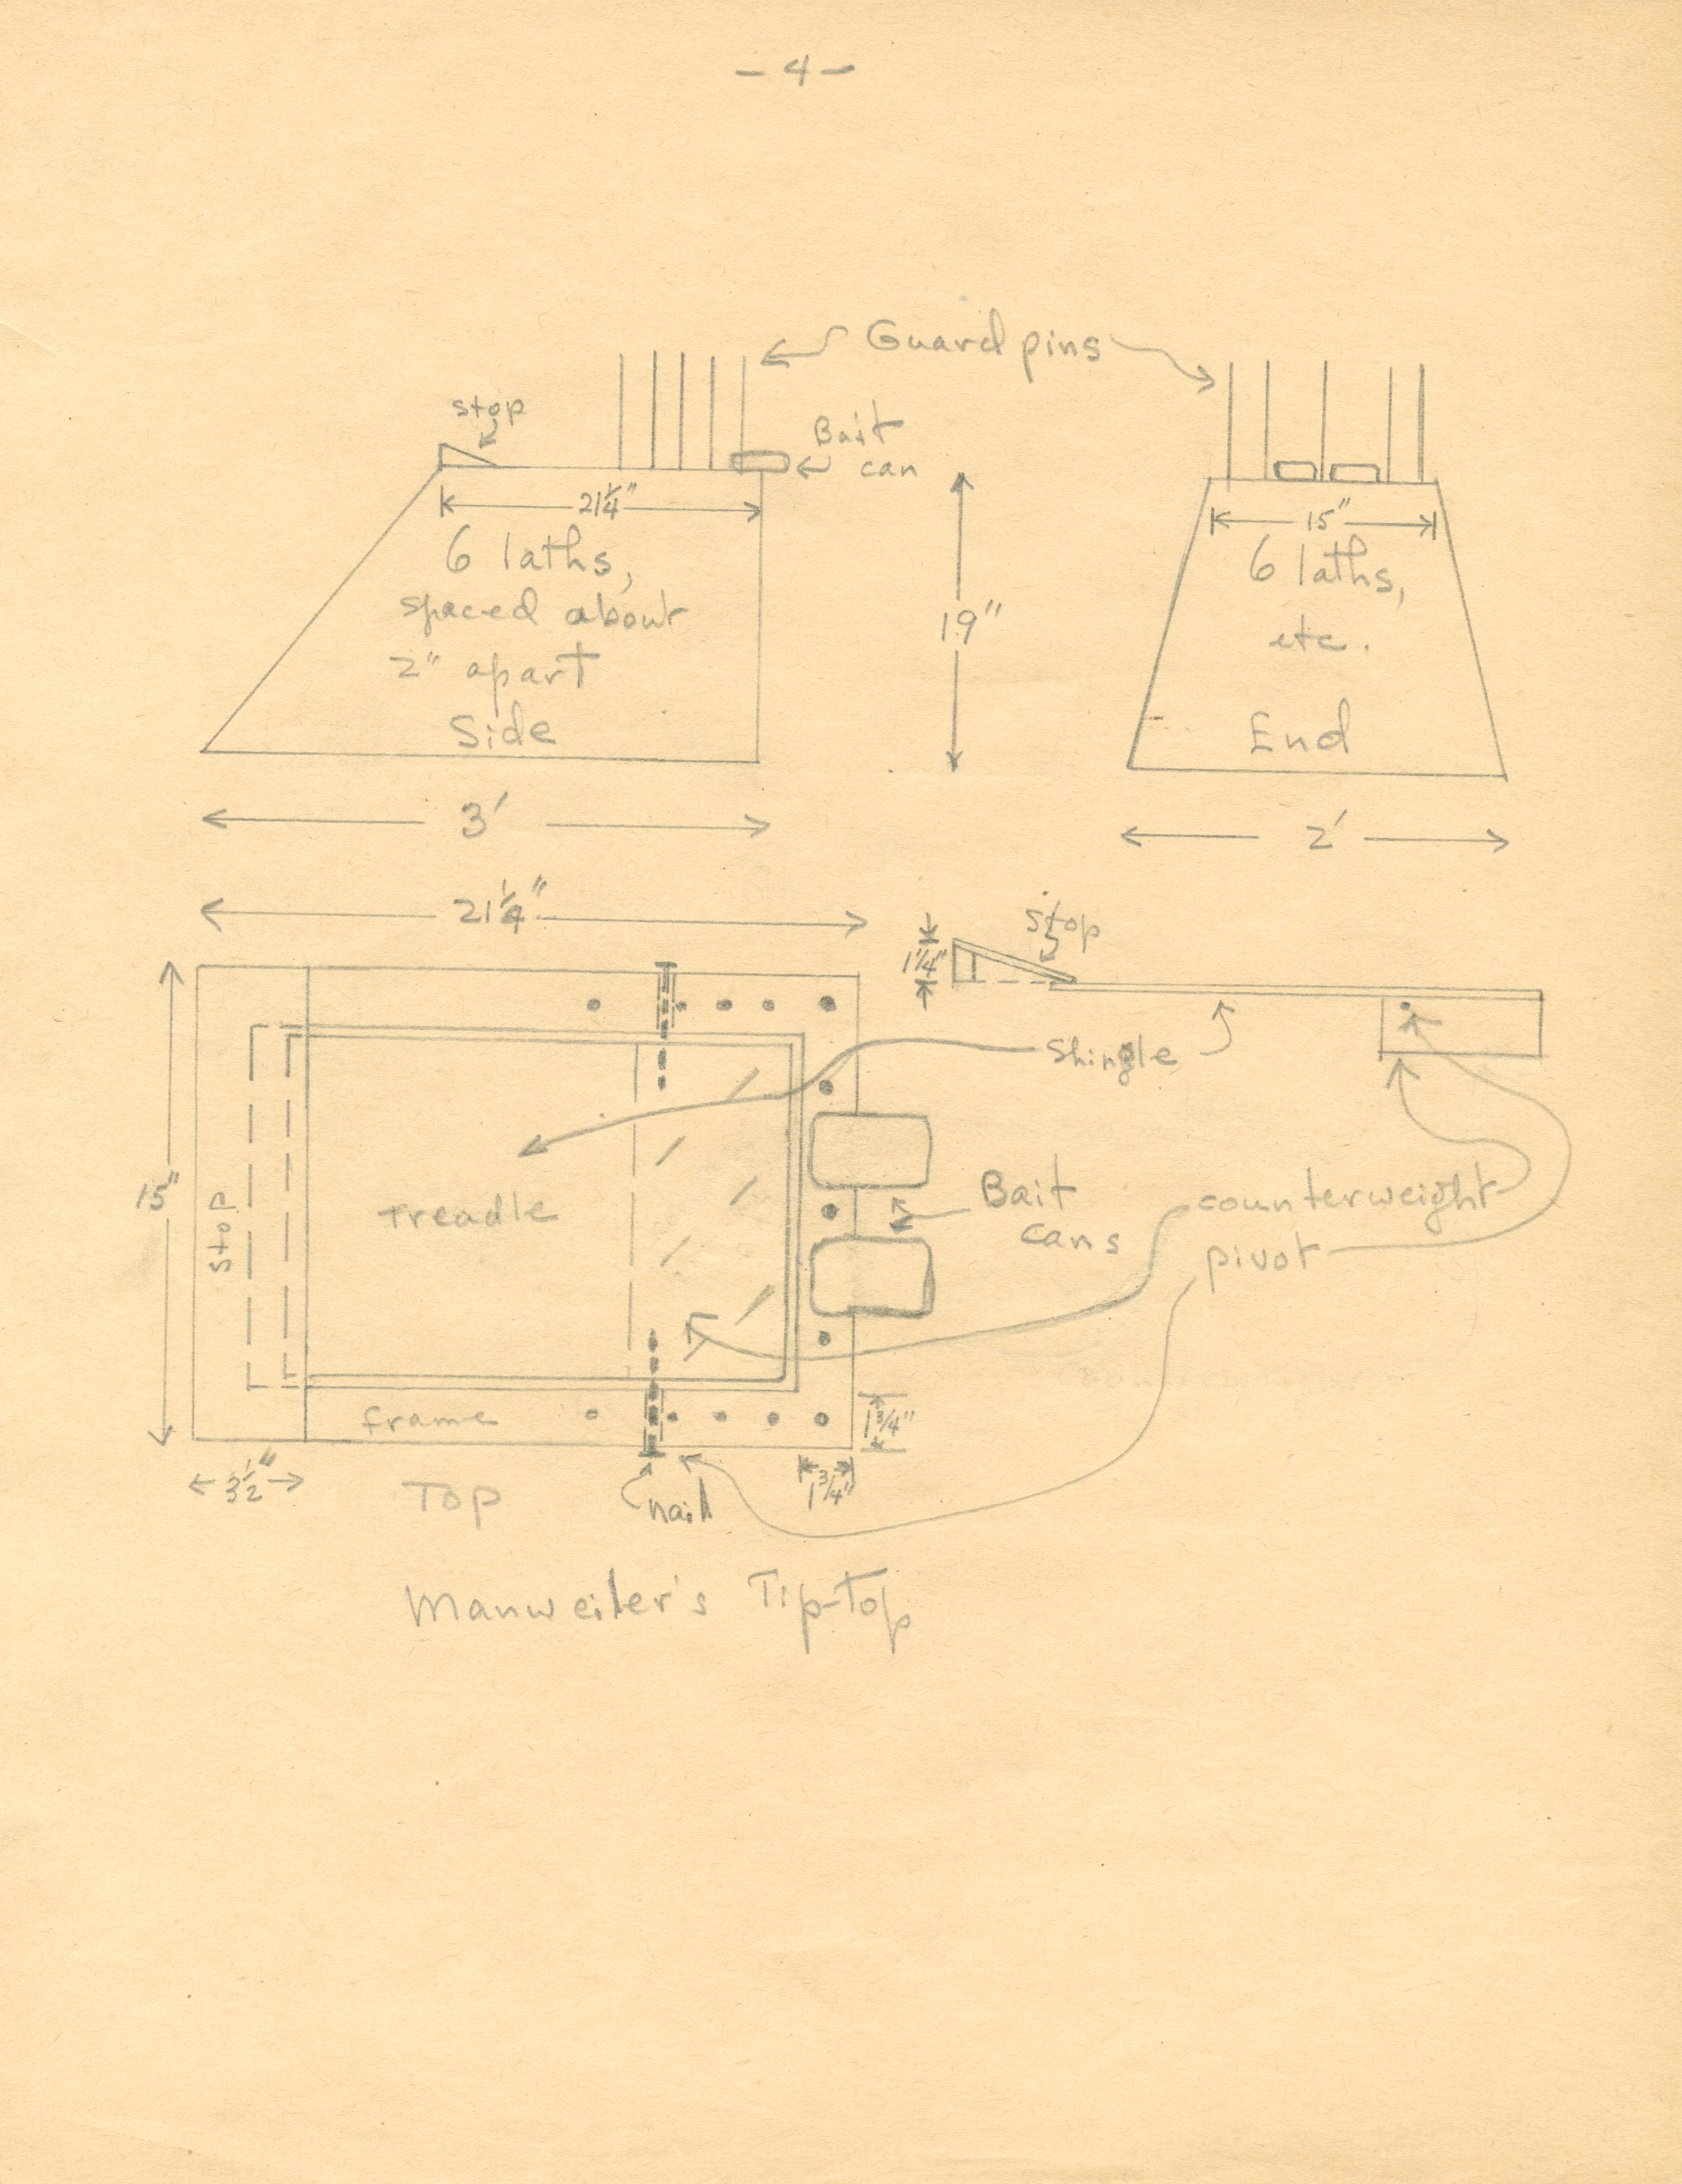 - 4 -
Guard pins
stop
Bait
can
21¼"
6 laths,
spaced about
2" apart
Side
19"
15"
6 laths,
etc.
End
3'
2'
21¼"
stop
1¼"
shingle
15"
stop
Treadle
Bait
cans
counterweight
pivot
frame
1¾"
1¾"
3½"
Top
nail
Manweiler's Tip-Top